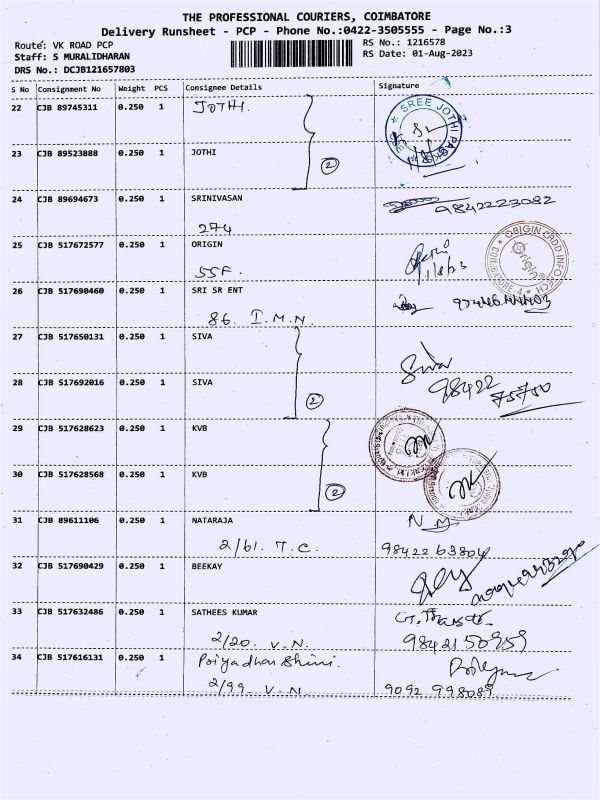 THE PROFESSIONAL COURIERS, COIMBATORE
Delivery Runsheet - PCP - Phone No.:0422-3505555 - Page No.:3
Route: VK ROAD PCP
RS No.: 1216578
Staff: S MURALIDHARAN
RS Date: 01-Aug-2023
DRS No.: DCJB121657803
S No Consignment No Weight PCS Consignee Details Signature
22 CJB 89745311 0.250 1 JOTHI.
SREE JOTHI
23 CJB 89523888 0.250 1 JOTHI
2
24 CJB 89694673 0.250 1 SRINIVASAN 9842223082
274
25 CJB 517672577 0.250 1 ORIGIN
ORIGIN CADD INFOTECH
Origin
55F. 1/8/23
26 CJB 517690460 0.250 1 SRI SR ENT
86. I.M.N.
27 CJB 517650131 0.250 1 SIVA
Siva
28 CJB 517692016 0.250 1 SIVA 98422
2 75750
29 CJB 517628623 0.250 1 KVB
30 CJB 517628568 0.250 1 KVB
2
31 CJB 89611106 0.250 1 NATARAJA
2/61. T.C. 9842263804
32 CJB 517690429 0.250 1 BEEKAY
33 CJB 517632486 0.250 1 SATHEES KUMAR
2/20. V.N. 9842150959
34 CJB 517616131 0.250 1 Poiyadharshini.
2/99 V.N 9092 998089